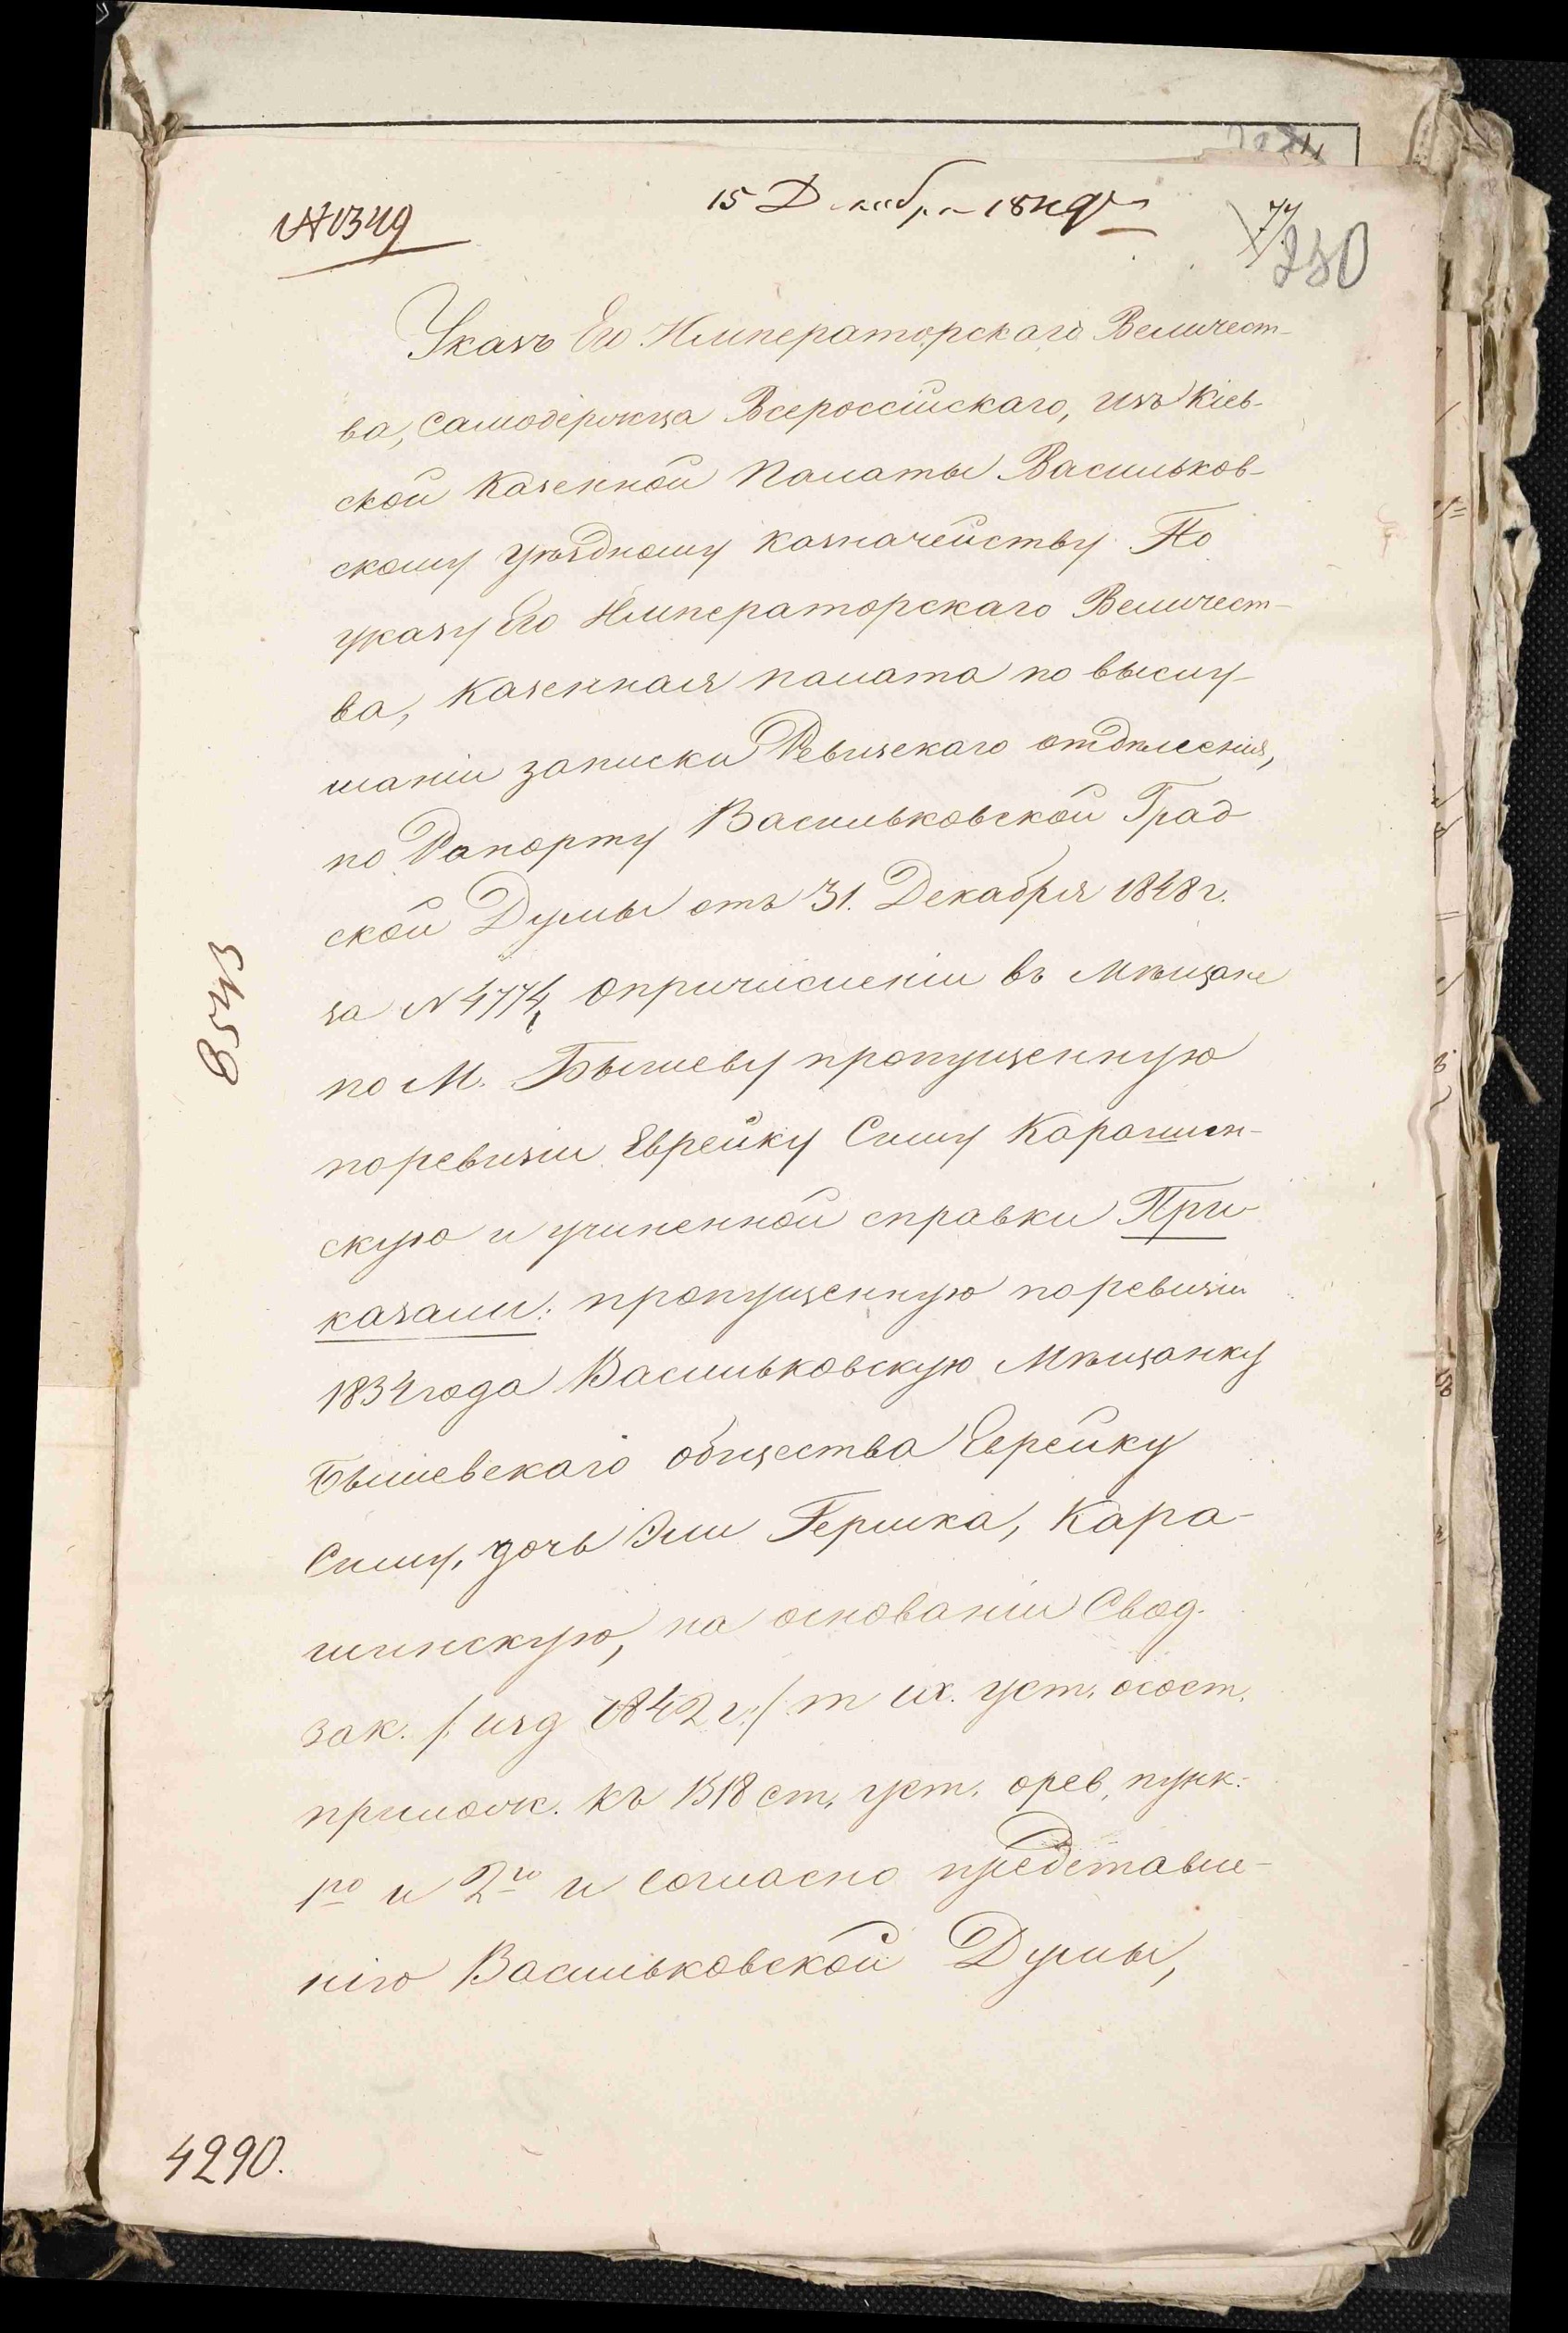 №10349
15 Декабря 1849 г
77
250
Указъ Его Императорскаго Величест-
ва, Самодержца Всероссійскаго, изъ Кіев-
ской Казенной Палаты Васильков-
скому уѣздному казначейству. По
указу Его Императорскаго Величест-
ва, Казенная палата по выслу-
шаніи записки Ревизскаго отдѣленія,
по Рапорту Васильковской Град
ской Думы отъ 31. Декабря 1848 г.
за № 4774, опричисленіи въ Мѣщане
по М. Бышеву пропущенную
поревизіи Еврейку Симу Карашин-
скую и учиненной справки При-
казали: пропущенную поревизіи
1834 года Васильковскую Мѣщанку
Бышевскаго общества Еврейку
Симу, дочь Эли Гершка, Кара-
шинскую, на основаніи Свод.
зак. /: изд 1842 г:/ т IX. уст. осост.
примѣч. къ 1518 ст. уст. орев. пунк:
1го и 2го и согласно представле-
нію Васильковской Думы,
8543
4290.